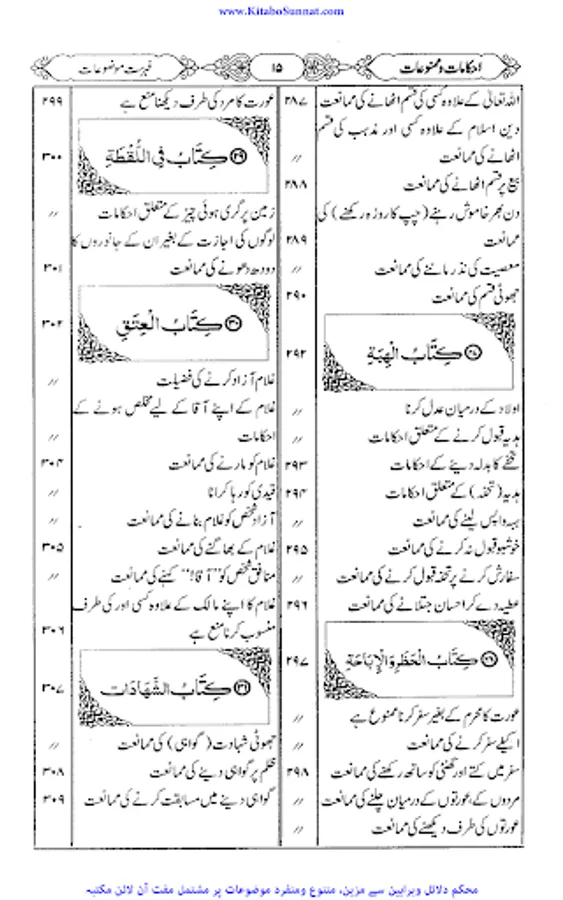 www.KitaboSunnat.com
احکامات و ممنوعات ۱۵ فہرست موضوعات
اللہ تعالیٰ کے علاوہ کسی کی قسم اٹھانے کی ممانعت ۲۸۷
دین اسلام کے علاوہ کسی اور مذہب کی قسم
اٹھانے کی ممانعت //
بیع پر قسم اٹھانے کی ممانعت ۲۸۸
دن بھر خاموش رہنے (چپ کا روزہ رکھنے) کی
ممانعت ۲۸۹
معصیت کی نذر ماننے کی ممانعت //
جھوٹی قسم کی ممانعت ۲۹۰
۲۸ كِتَابُ الْهِبَةِ ۲۹۲
اولاد کے درمیان عدل کرنا //
ہدیہ قبول کرنے کے متعلق احکامات //
تحفے کا بدلہ دینے کے احکامات ۲۹۳
ہدیہ (تحفہ) کے متعلق احکامات ۲۹۴
ہبہ واپس لینے کی ممانعت //
خوشبو قبول نہ کرنے کی ممانعت ۲۹۵
سفارش کرنے پر تحفہ قبول کرنے کی ممانعت //
عطیہ دے کر احسان جتلانے کی ممانعت ۲۹۶
كِتَابُ الْحَظْرِ وَالْإِبَاحَةِ ۲۹۷
عورت کا محرم کے بغیر سفر کرنا ممنوع ہے //
اکیلے سفر کرنے کی ممانعت //
سفر میں کتے اور گھنٹی کو ساتھ رکھنے کی ممانعت ۲۹۸
مردوں کے، عورتوں کے درمیان چلنے کی ممانعت //
عورتوں کی طرف دیکھنے کی ممانعت //
عورت کا مرد کی طرف دیکھنا منع ہے ۲۹۹
۲۹ كِتَابٌ فِي اللُّقَطَةِ ۳۰۰
زمین پر گری ہوئی چیز کے متعلق احکامات //
لوگوں کی اجازت کے بغیر ان کے جانوروں کا
دودھ دھونے کی ممانعت ۳۰۱
۳۰ كِتَابُ الْعِتَقِ ۳۰۲
غلام آزاد کرنے کی فضیلت //
غلام کے اپنے آقا کے لیے مخلص ہونے کے
احکامات //
غلام کو مارنے کی ممانعت ۳۰۴
قیدی کو رہا کرانا //
آزاد شخص کو غلام بنانے کی ممانعت //
غلام کے بھاگنے کی ممانعت ۳۰۵
منافق شخص کو ”آقا!“ کہنے کی ممانعت //
غلام کا اپنے مالک کے علاوہ کسی اور کی طرف
منسوب کرنا منع ہے ۳۰۶
۳۱ كِتَابُ الشَّهَادَات ۳۰۷
جھوٹی شہادت (گواہی) کی ممانعت //
ظلم پر گواہی دینے کی ممانعت ۳۰۸
گواہی دینے میں مسابقت کرنے کی ممانعت ۳۰۹
محکم دلائل وبراہین سے مزین، متنوع ومنفرد موضوعات پر مشتمل مفت آن لائن مکتبہ